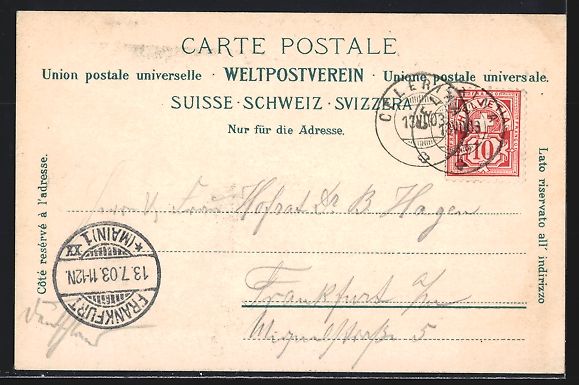 CARTE POSTALE.
Union postale universelle · WELTPOSTVEREIN · Unione postale universale.
SUISSE · SCHWEIZ · SVIZZERA
Nur für die Adresse.
HELVETIA
10
CELERINA
Côté resérvé à l'adresse.
Lato riservato all' indirizzo
Hofrat Dr B. Hagen
Frankfurt a/m
Miquelstraße 5
Deutschland
FRANKFURT
13.7.03.11-12N.
*(MAIN)1 XX